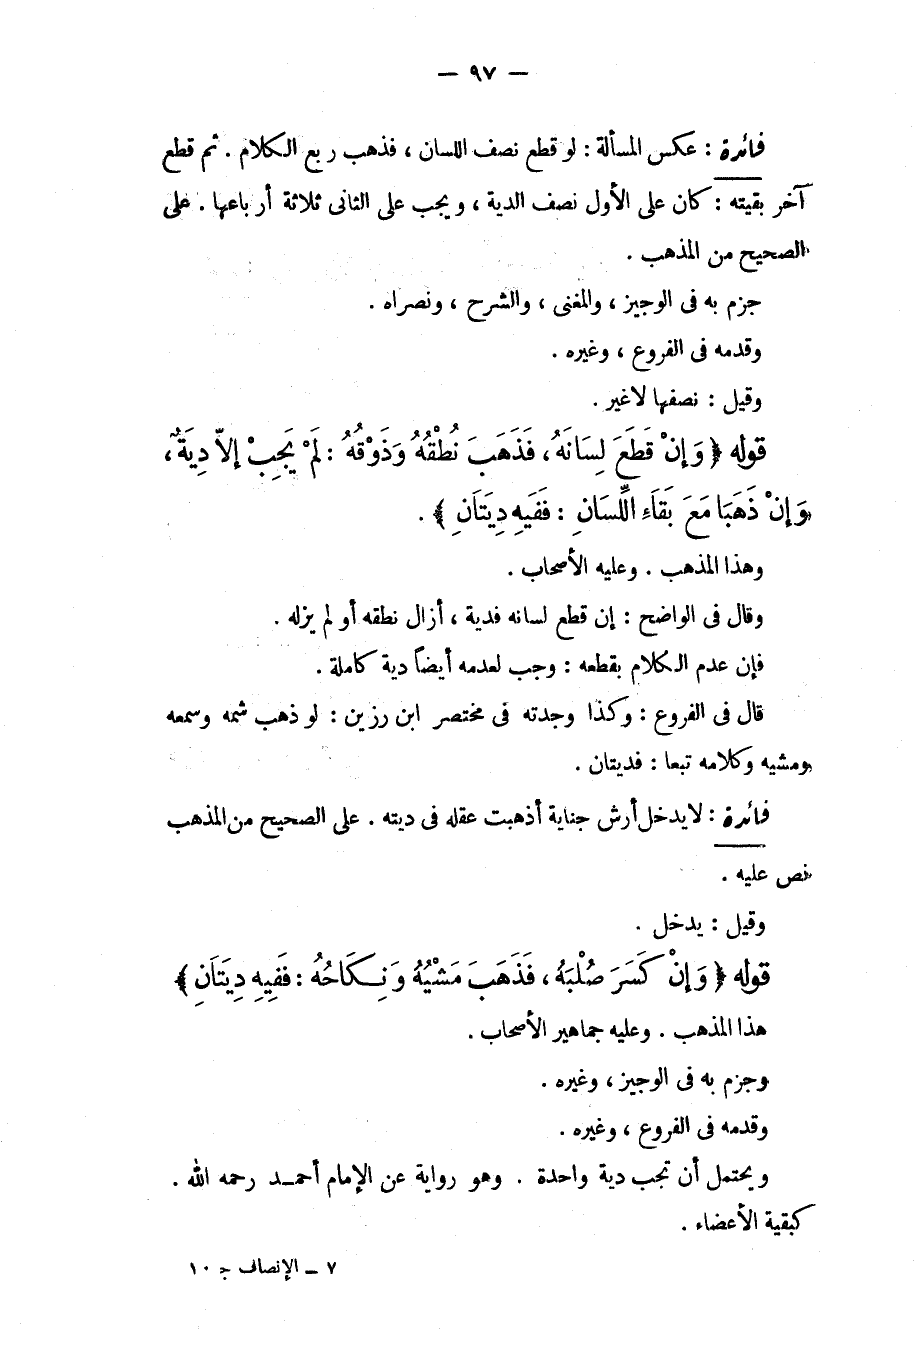 — ٩٧ —
فائدة : عكس المسألة : لو قطع نصف اللسان ، فذهب ربع الكلام . ثم قطع
آخر بقيته : كان على الأول نصف الدية ، ويجب على الثانى ثلاثة أرباعها . على
الصحيح من المذهب .
جزم به فى الوجيز ، والمغنى ، والشرح ، ونصراه .
وقدمه فى الفروع ، وغيره .
وقيل : نصفها لاغير .
قوله ﴿ وَإِنْ قَطَعَ لِسَانَهُ ، فَذَهَبَ نُطْقُهُ وَذَوْقُهُ : لَمْ يَجِبْ إِلاَّ دِيَةٌ ،
وَإِنْ ذَهَبَا مَعَ بَقَاءِ اللِّسَانِ : فَفِيهِ دِيَتَانِ ﴾ .
وهذا المذهب . وعليه الأصحاب .
وقال فى الواضح : إن قطع لسانه فدية ، أزال نطقه أو لم يزله .
فإن عدم الكلام بقطعه : وجب لعدمه أيضاً دية كاملة .
قال فى الفروع : وكذا وجدته فى مختصر ابن رزين : لو ذهب شمه وسمعه
ومشيه وكلامه تبعا : فديتان .
فائدة : لايدخل أرش جناية أذهبت عقله فى ديته . على الصحيح من المذهب
نص عليه .
وقيل : يدخل .
قوله ﴿ وَإِنْ كَسَرَ صُلْبَهُ ، فَذَهَبَ مَشْيُهُ وَنِكَاحُهُ : فَفِيهِ دِيَتَانِ ﴾
هذا المذهب . وعليه جماهير الأصحاب .
وجزم به فى الوجيز ، وغيره .
وقدمه فى الفروع ، وغيره .
ويحتمل أن تجب دية واحدة . وهو رواية عن الإمام أحمد رحمه الله .
كبقية الأعضاء .
٧ ـ الإنصاف ج ١٠